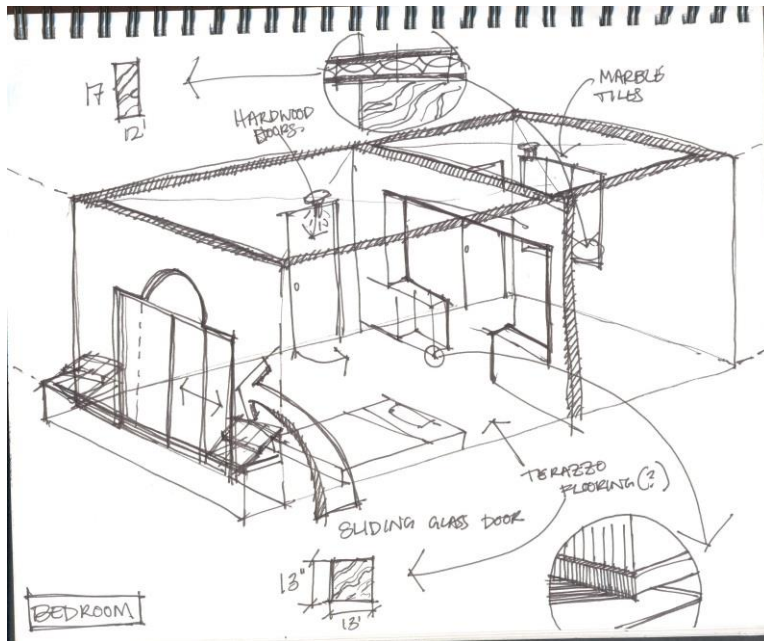 17
12'
HARDWOOD
DOORS
MARBLE
TILES
TERAZZO
FLOORING(?)
SLIDING GLASS DOOR
13"
13'
BEDROOM